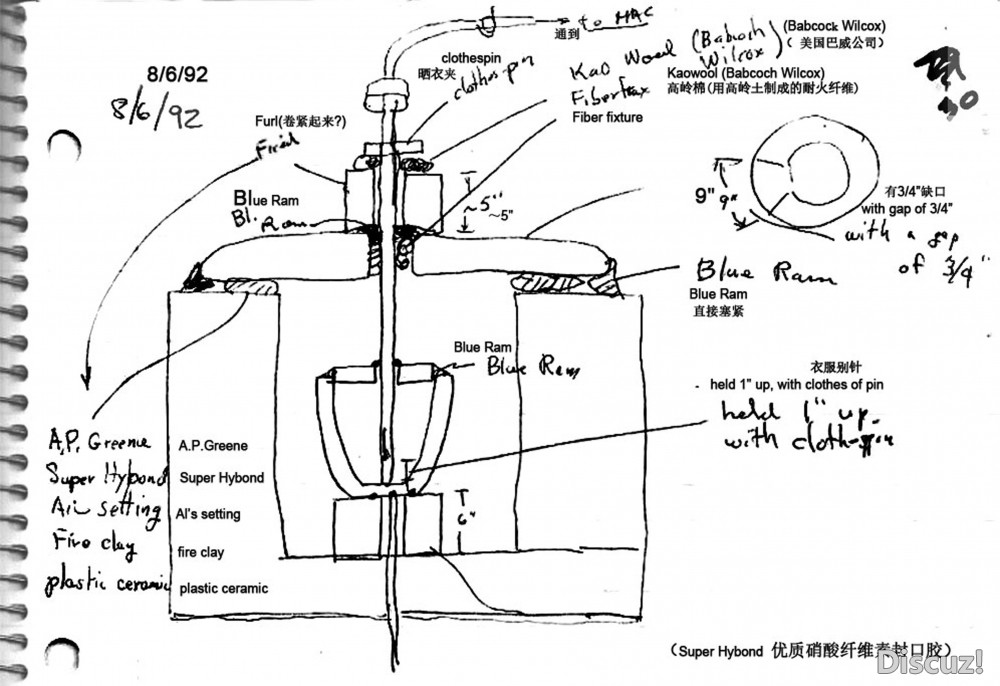 to MAC
通到
(Babcock Wilcox)
( 美国巴威公司)
clothespin
晒衣夹
clothes pin
Kao Wool (Babcoch
Wilcox)
Kaowool (Babcoch Wilcox)
高岭棉(用高岭土制成的耐火纤维)
Fiberfrax
Fiber fixture
8/6/92
8/6/92
Furl(卷紧起来?)
Blue Ram
Bl. Ram
~5"
~5"
9"
9"
有3/4"缺口
with gap of 3/4"
with a gap
of 3/4"
Blue Ram
Blue Ram
直接塞紧
Blue Ram
Blue Ram
衣服别针
- held 1" up, with clothes of pin
held 1" up
with cloth-pin
6"
A.P. Greene
Super Hybond
Air setting
Fire clay
plastic ceramic
A.P.Greene
Super Hybond
Al's setting
fire clay
plastic ceramic
(Super Hybond 优质硝酸纤维素封口胶)
Discuz!